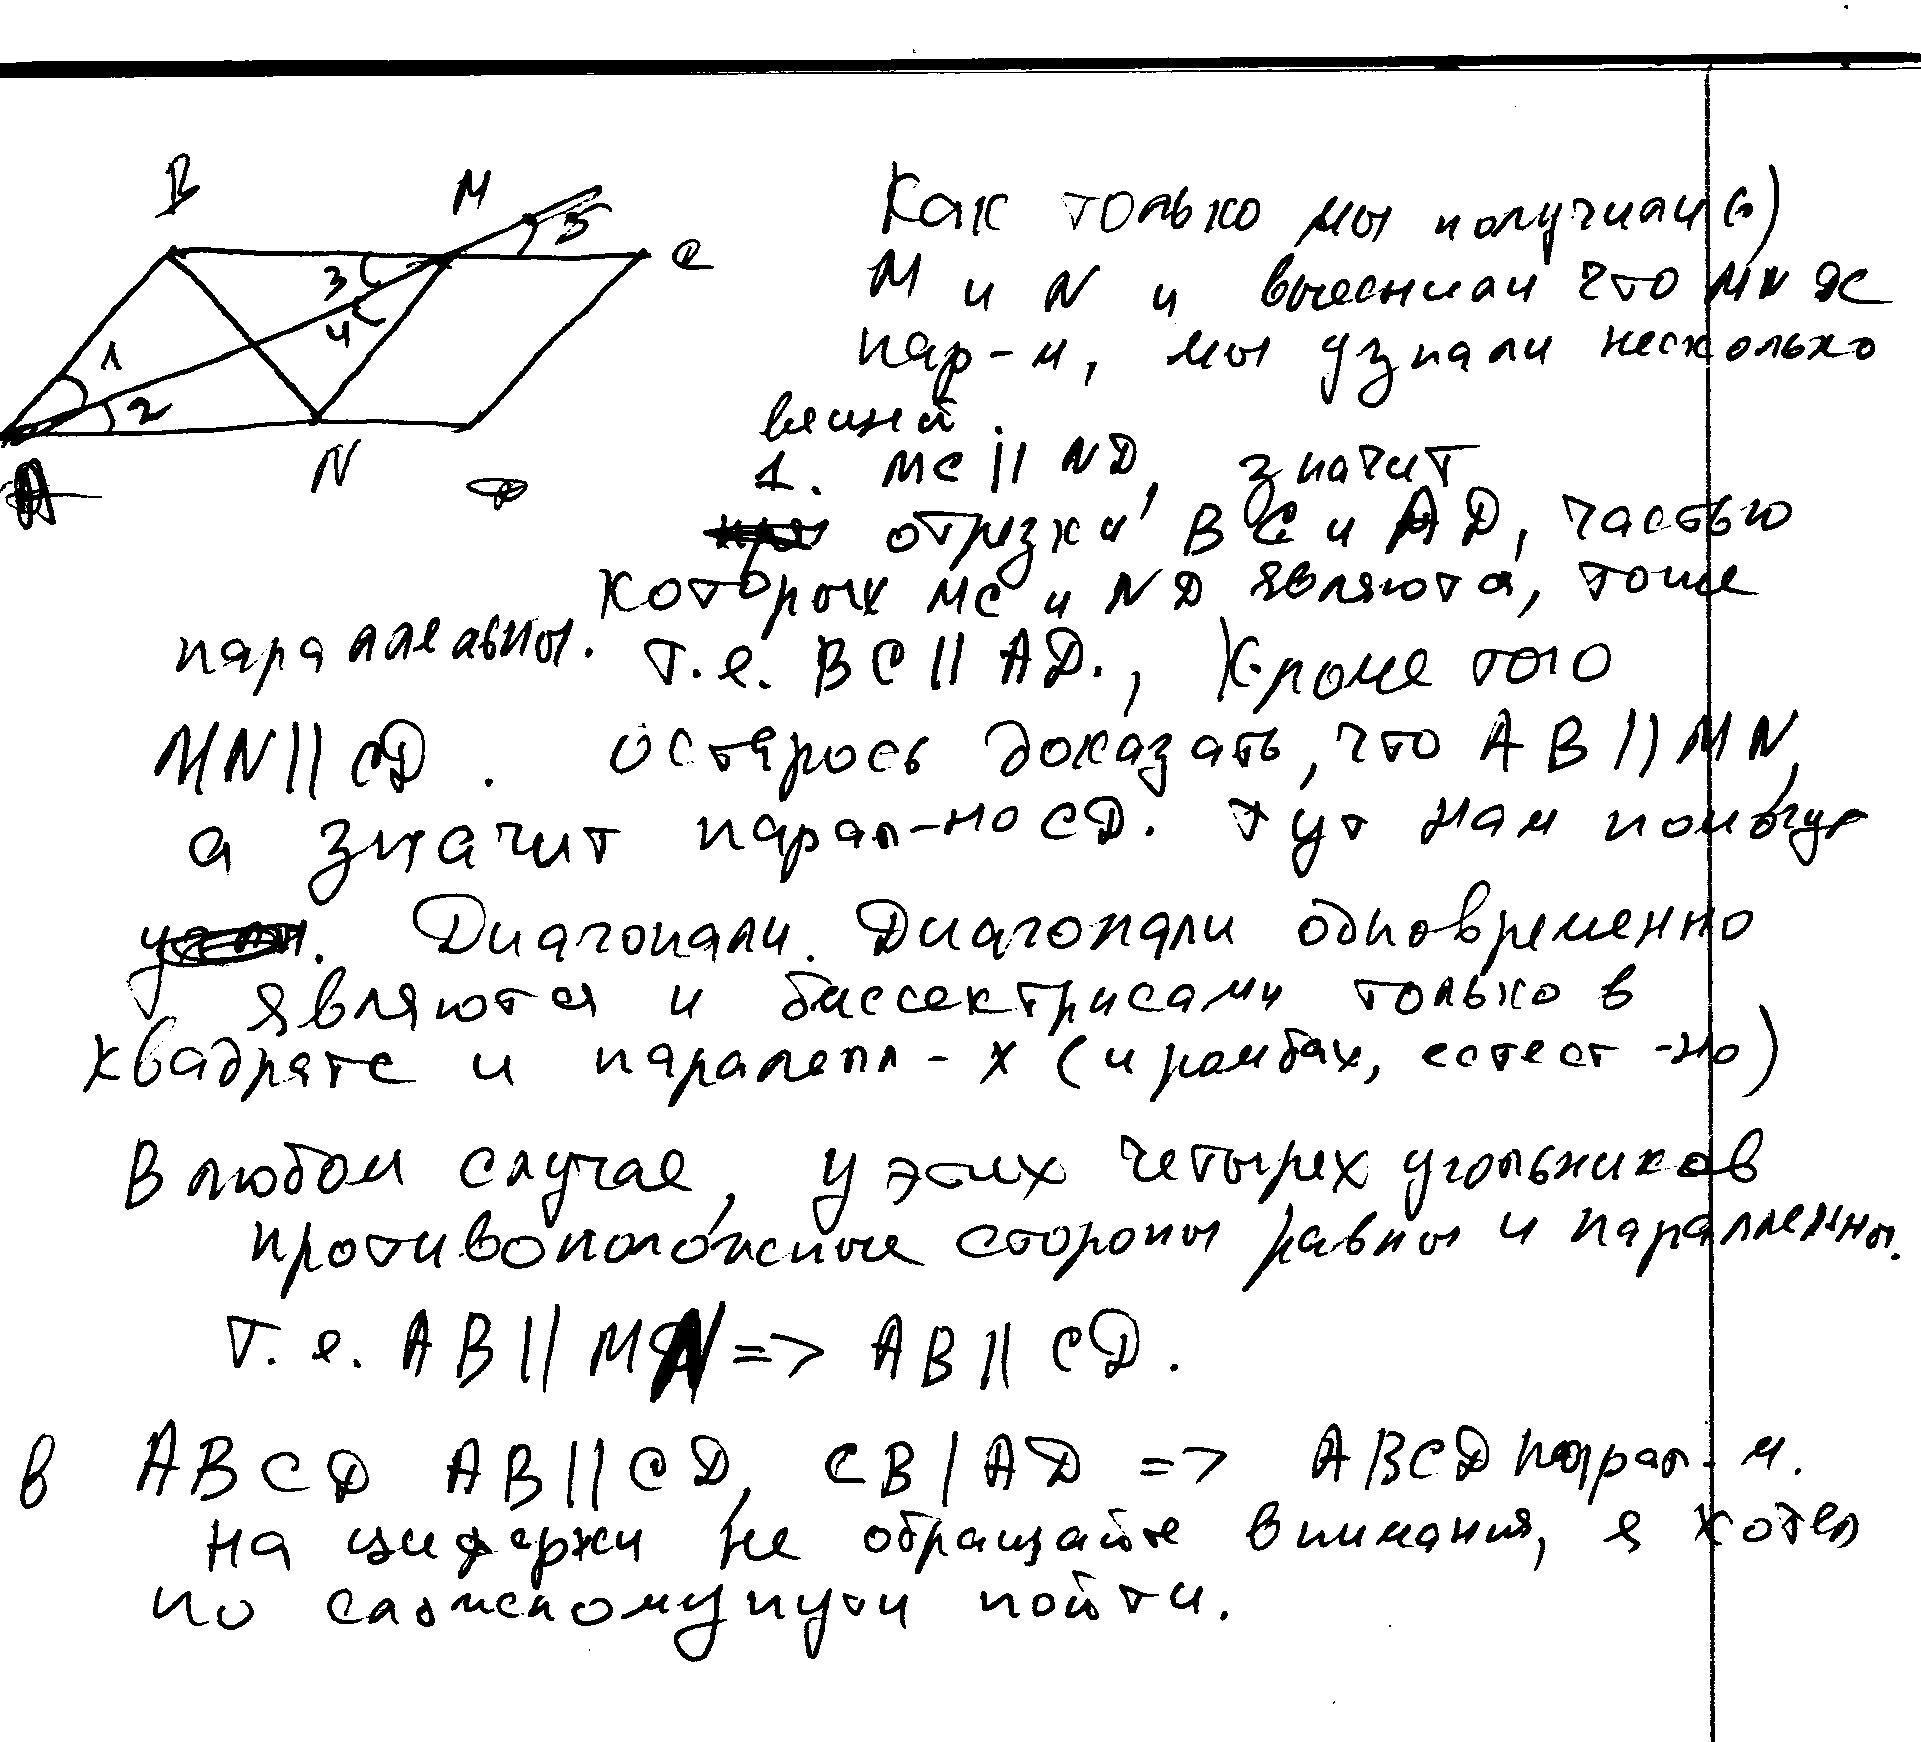 B M 5 C
3
4
1
2
A N D
Как только мы получили (.)
M и N и выяснили что MNDC
пар-м, мы узнали несколько
вещей.
1. MC || ND, значит
отрезки BC и AD, частью
которых MC и ND являются, тоже
параллельны. т.е. BC || AD., Кроме того
MN || CD. осталось доказать, что AB || MN,
а значит парал-но CD. Тут нам помогут
Диагонали. Диагонали одновременно
являются и биссектрисами только в
квадрате и паралепл-х (и ромбах, естест-но)
В любом случае, у этих четырех угольников
противоположные стороны равны и параллельны.
Т.е. AB || MN => AB || CD.
В ABCD AB || CD, CB | AD => ABCD парал-м.
на циферки не обращайте внимания, я хотел
по сложному пути пойти.